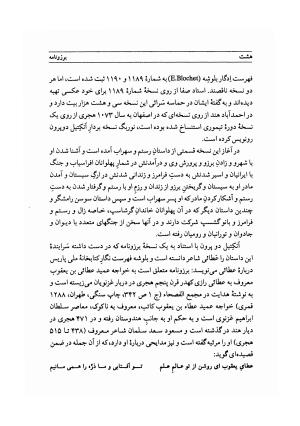 هشت
برزونامه
فهرست اِدگار بلوشِه (E.Blochet) به شمارهٔ ۱۱۸۹ و ۱۱۹۰ ثبت شده است، اما هر
دو نسخه ناقصند. استاد صفا از روی نسخهٔ شمارهٔ ۱۱۸۹ برای خود عکسی تهیه
دیده‌اند و به گفتهٔ ایشان در حماسه سَرائی این نسخه سی و هشت هزار بیت دارد و
در احمدآباد هند از روی نسخه‌ای که در اصفهان به سال ۱۰۷۳ هجری از روی یک
نسخهٔ دورهٔ تیموری استنساخ شده بوده است، نورنگ نسخه بردارِ آنکتیل دوپرون
رونویس کرده است.
در آغاز این نسخه قسمتی از داستانِ رستم و سهراب آمده است و آشنا شدن او
با شهرو و زادنِ برزو و پرورش وی و درآمدنش در شمارِ پهلوانان افراسیاب و جنگ
با ایرانیان و اسیر شدنش به دستِ فرامرز و زندانی شدنش در ارگِ سیستان و آمدن
مادرِ او به سیستان و گریختنِ برزو از زندان و رزمِ او با رستم و گرفتار شدن به دستِ
رستم و آشکار کردنِ مادر که او پسرِ سهراب است و سپس داستانِ سوسنِ رامشگر و
چندین داستانِ دیگر که در آن پهلوانانِ خاندانِ گرشاسپ، خاصه زال و رستم و
فرامرز و بانو گشسپ شرکت دارند و در آنها سخن از جنگهای متعدد با دیوان و
جادوان و تورانیان و رومیان رفته است.
آنکتیل دو پرون با استناد به یک نسخهٔ برزونامه که در دست داشته سرایندهٔ
این داستان را عَطائی شاعر دانسته است و بلوشه فهرست نگار کتابخانهٔ ملی پاریس
دربارهٔ عطائی می‌نویسد: برزونامه متعلق است به خواجه عمید عطائی بن یعقوب
معروف به عطائی رازی کهدر قرن پنجم هجری در دربار غزنویان می‌زیسته است و
به نوشتهٔ هدایت در مجمع الفصحاء (ج ۱ ص ۳۴۲، چاپ سنگی، طهران، ۱۲۸۸
قمری) خواجه عمید عطاء بن یعقوب کاتب، معروف به ناکوک، معاصر سلطان
ابراهیم غزنوی است و به حکم او به جانبِ هندوستان رفته و در ۴۷۱ هجری در
دیار هند در گذشته است و مسعود سعد سلمان شاعر معروف (۴۳۸ تا ۵۱۵
هجری) او را مرثیه گفته است و نیز مدایحی دربارهٔ او دارد، که از آن جمله در ضمن
قصیده‌ای گوید:
عطای یعقوب ای روشن از تو عالمِ علم تو آفتابی و ما ذرّه را همی مانیم